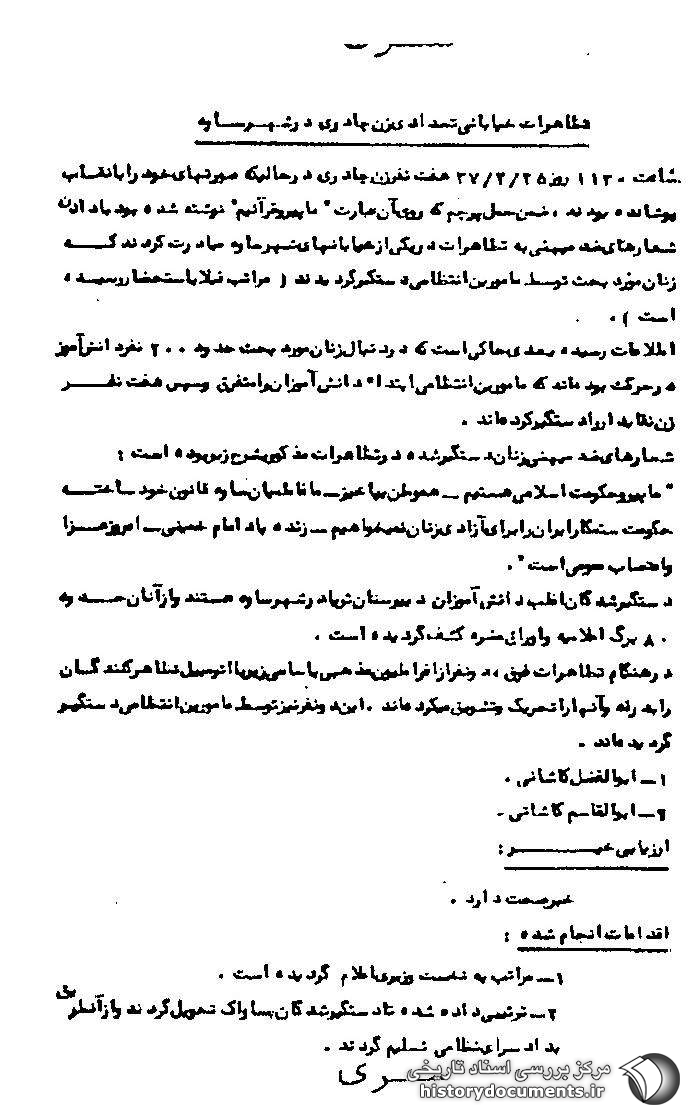 سری
تظاهرات خیابانی تعدادی زن چادری در شهر ساوه
ساعت ۱۱۳۰ روز ۳۷/۲/۲۵ هفت نفر زن چادری در حالیکه صورتهای خود را با نقاب
پوشانده بودند، ضمن حمل پرچم که روی آن عبارت " ما پیرو قرآنیم" نوشته شده بود با دادن
شعارهای ضد میهنی به تظاهرات در یکی از خیابانهای شهر ساوه مبادرت کردند که
زنان مورد بحث توسط مامورین انتظامی دستگیر گردیدند ( مراتب قبلا باستحضار رسیده
است ) .
اطلاعات رسیده بعدی حاکی است که در دنبال زنان مورد بحث حدود ۲۰۰ نفر دانش آموز
در حرکت بوده اند که مامورین انتظامی ابتدا" دانش آموزان را متفرق و سپس هفت نفر
زن نقابدار را دستگیر کرده اند .
شعارهای ضد میهنی زنان دستگیر شده در تظاهرات مذکور بشرح زیر بوده است :
" ما پیرو حکومت اسلامی هستیم ـ هموطن بپا خیز ـ ما فاطمیان ساوه قانون خود ساخته
حکومت ستمکار ایران را برای آزادی زنان نمیخواهیم ـ زنده باد امام خمینی ـ امروز عزا
و اعتصاب عمومی است " .
دستگیرشدگان اغلب دانش آموزان دبیرستان ثریا در شهر ساوه هستند و از آنان جمعه
۸۰ برگ اعلامیه و اوراق مضره کشف گردیده است .
در هنگام تظاهرات فوق، دو نفر از افراطیون مذهبی با اسامی زیر با اتومبیل تظاهرکنندگان
را بدرقه و آنها را تحریک و تشویق میکرده اند . این دو نفر نیز توسط مامورین انتظامی دستگیر
گردیده اند .
۱ـ ابوالفضل کاشانی .
۲ـ ابوالقاسم کاشانی .
ارزیابی خبر :
خبر صحت دارد .
اقدامات انجام شده :
۱ـ مراتب به نخست وزیری اعلام گردیده است .
۲ـ ترتیبی داده شده تا دستگیرشدگان بساواک تحویل گردند و از آنطریق
بدادسرای نظامی تسلیم گردند .
سری
مرکز بررسی اسناد تاریخی
historydocuments.ir